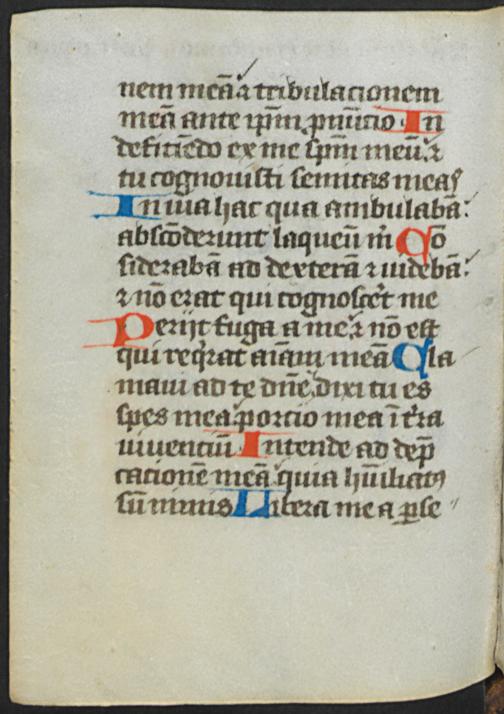 nem meā ⁊ tribulacionem
meā ante ip̄m p̄nūcio In
deficiēdo ex me sp̄m meū ⁊
tu cognouisti semitas meas
In uia hac qua ambulabā:
abscōderunt laqueū m̄ Cō
siderabā ad dexterā ⁊ uidebā:
⁊ nō erat qui cognosceret me
Perijt fuga a me ⁊ nō est
qui reqͥrat aīam meā Cla
maui ad te dn̄e dixi tu es
spes mea portio mea ī tͤra
uiuentiū Intende ad dep̄
cationē meā quia hūiliatꝰ
sū nimis Libera me a ꝑse